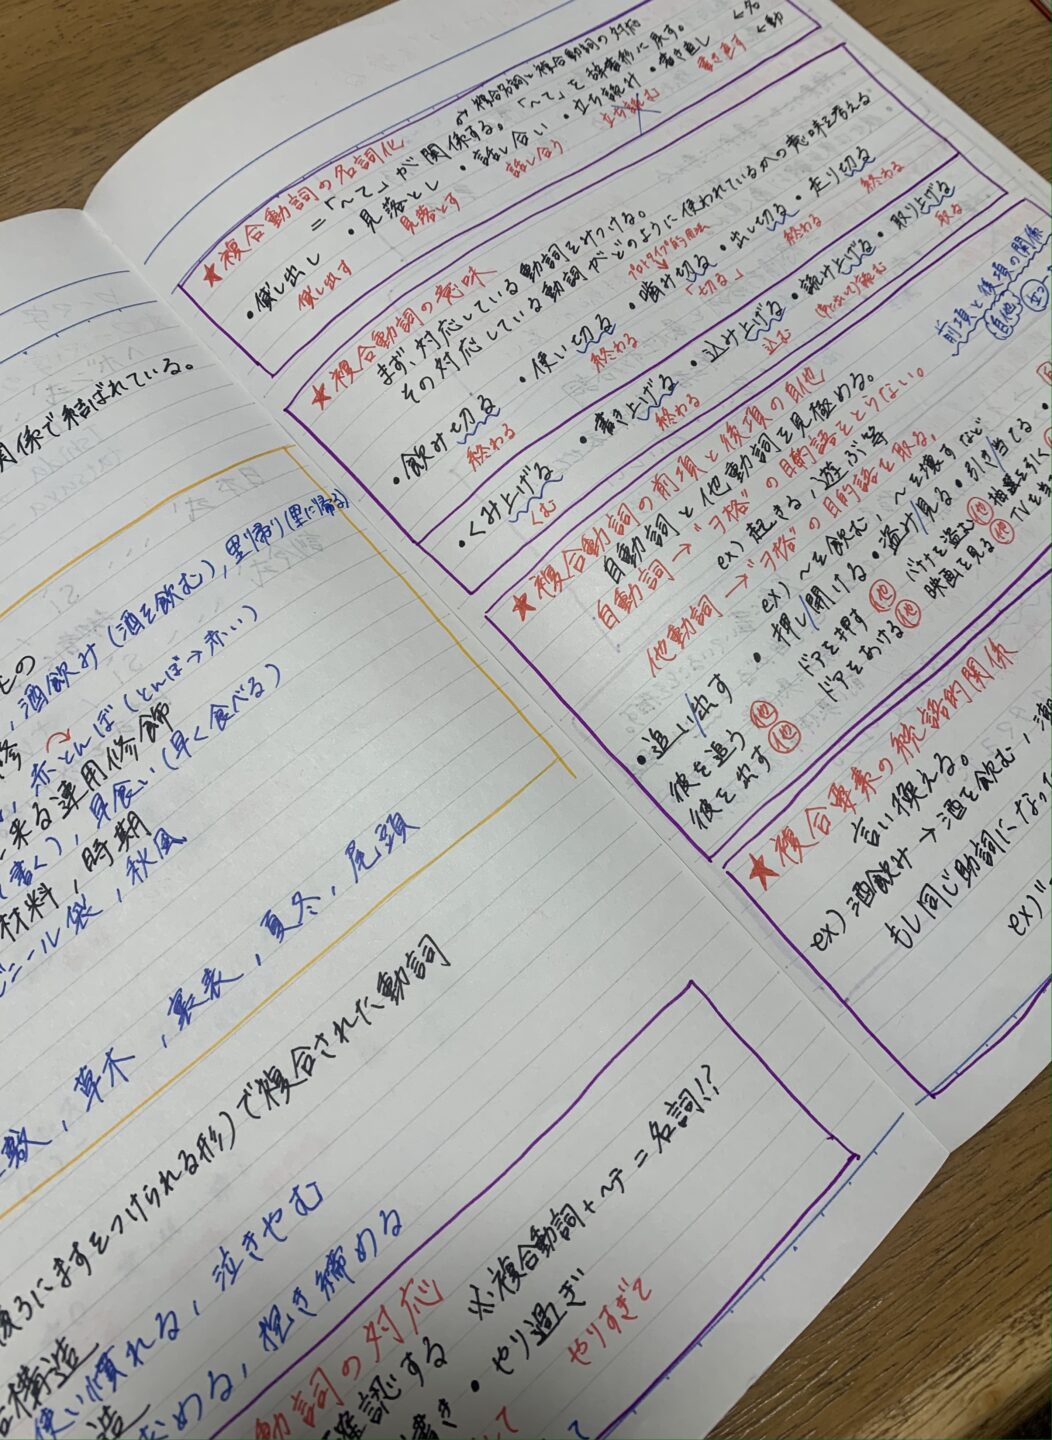 関係で結ばれている。
もの
, 酒飲み(酒を飲む), 里帰り(里に帰る)
修
, 赤とんぼ(とんぼ→赤い)
来る連用修飾
書く), 早食い(早く食べる)
材料, 時期
ビニール袋, 秋風
, 草木, 裏表, 夏冬, 尾頭
後ろにますをつけられる形)で複合された動詞
構造
使い慣れる, 泣きやむ
造
める, 抱き締める
動詞の対応
確認する
書き ・やり過ぎ
やりすぎて
※複合動詞+〜テ=名詞!?
★複合動詞の名詞化
複合名詞と複合動詞の対応
=「〜て」が関係する。「〜て」を辞書形に戻す。
・貸し出し ・見落とし ・話し合い ・立ち読み ・書き直し ←名
貸し出す 見落とす 話し合う 立ち読む 書き直す ←動
★複合動詞の意味
まず、対応している動詞をみつける。
その対応している動詞がどのように使われているかの意味を考える
プロトタイプ的用法
・飲み切る ・使い切る ・噛み切る ・出し切る ・走り切る
終わる 終わる 「切る」 終わる 終わる
・くみ上げる ・書き上げる ・込み上げる ・読み上げる ・取り上げる
くむ 終わる 込む 読む 取る
前項と後項の関係
★複合動詞の前項と後項の自他
自動詞と他動詞を見極める。
自動詞→"ヲ格"の目的語をとらない。
ex)起きる, 遊ぶ 等
他動詞→"ヲ格"の目的語を取る。
ex)〜を飲む, 〜を壊す など
・追い/出す ・押し/開ける ・盗み/見る ・引き/当てる
彼を追う 他 ドアを押す 他 バナナを盗む 他
彼を出す 他 ドアをあける 他 映画を見る 他
★複合要素の統語的関係
言い換える。
ex)酒飲み→酒を飲む,
もし同じ助詞になって
ex)